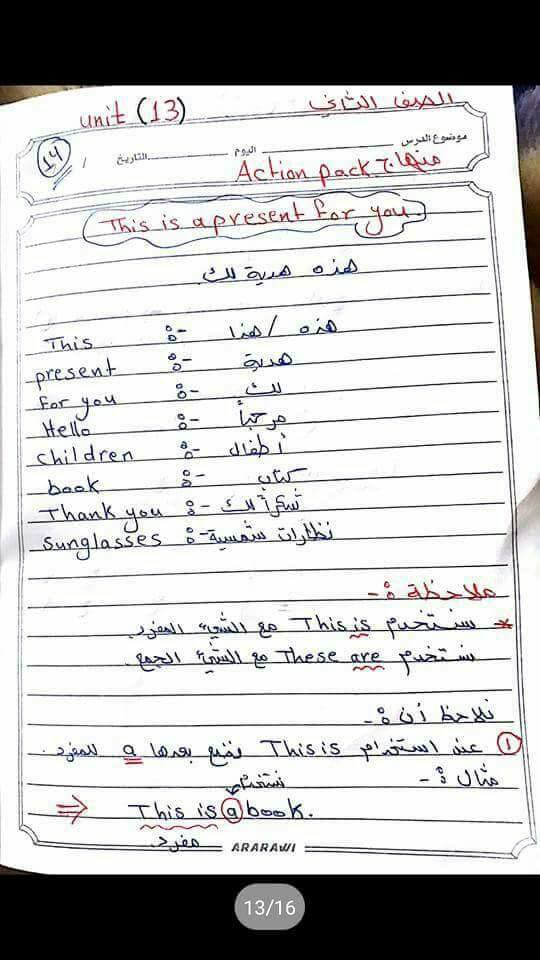 unit (13) الصف الثاني
14 التاريخ / اليوم موضوع الدرس
Action pack منهاج
This is a present for you.
هذه هدية لك.
This :- هذه / هذا
present :- هدية
for you :- لك
Hello :- مرحباً
children :- أطفال
book :- كتاب
Thank you :- شكراً لك
Sunglasses :- نظارات شمسية
ملاحظة :-
* نستخدم This is مع الشيء المفرد.
نستخدم These are مع الشيء الجمع.
نلاحظ أن :-
1 عند استخدام This is نضع بعدها a للمفرد.
مثال :-
نستخدم
⇒ This is a book.
مفرد
ARARAWI
13/16